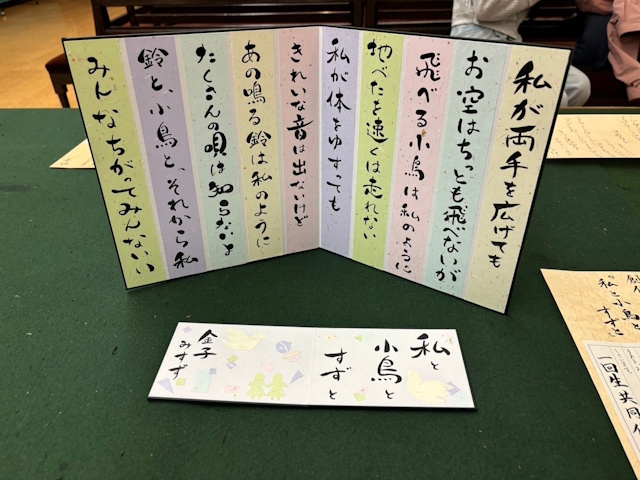 私が両手を広げても
お空はちっとも飛べないが
飛べる小鳥は私のように
地べたを速くは走れない
私が体をゆすっても
きれいな音は出ないけど
あの鳴る鈴は私のように
たくさんの唄は知らないよ
鈴と、小鳥と、それから私
みんなちがってみんないい
私と
小鳥と
すずと
金子
みすず
私と小鳥と
すずと
一回生共同作